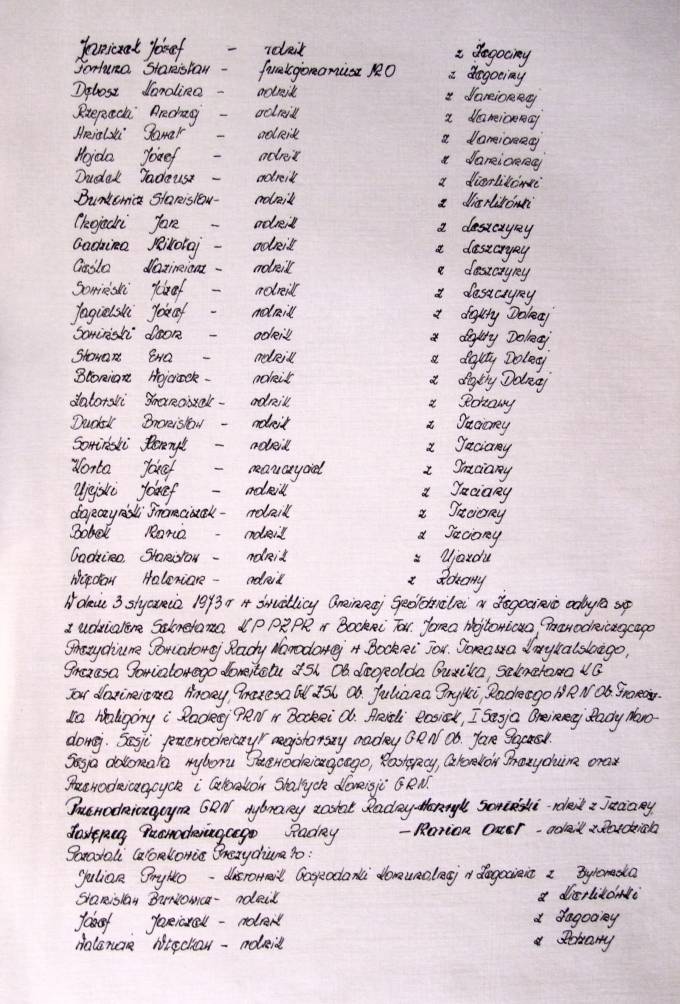 Janiczek Józef - rolnik z Żegociny
Fortuna Stanisław - funkcjonariusz MO z Żegociny
Dębosz Karolina - rolnik z Kamionnej
Rzepecki Andrzej - rolnik z Kamionnej
Anielski Paweł - rolnik z Kamionnej
Hojda Józef - rolnik z Kamionnej
Dudek Tadeusz - rolnik z Kierlikówki
Bunkowicz Stanisław - rolnik z Kierlikówki
Chojecki Jan - rolnik z Leszczyny
Gadzina Mikołaj - rolnik z Leszczyny
Cieśla Kazimierz - rolnik z Leszczyny
Sowiński Józef - rolnik z Leszczyny
Jagielski Józef - rolnik z Łąkty Dolnej
Sowiński Leon - rolnik z Łąkty Dolnej
Słowan Ewa - rolnik z Łąkty Dolnej
Błoniarz Wojciech - rolnik z Łąkty Dolnej
Zatorski Franciszek - rolnik z Rdzawy
Dudek Bronisław - rolnik z Trzciany
Sowiński Henryk - rolnik z Trzciany
Worta Józef - nauczyciel z Trzciany
Ujejski Józef - rolnik z Trzciany
Łapczyński Franciszek - rolnik z Trzciany
Bobek Maria - rolnik z Trzciany
Gadzina Stanisław - rolnik z Ujazdu
Więcław Walenian - rolnik z Rdzawy
W dniu 3 stycznia 1973 r w świetlicy Gminnej Spółdzielni w Żegocinie odbyła się
z udziałem Sekretarza KP PZPR w Bochni Tow. Jana Wojtowicza, Przewodniczącego
Prezydium Powiatowej Rady Narodowej w Bochni Tow. Tomasza Krzykalskiego,
Prezesa Powiatowego Komitetu ZSL Ob. Leopolda Guzika, Sekretarza KG
Tow. Kazimierza Wrony, Prezesa GK ZSL Ob. Juliana Prytki, Radnego WRN Ob. Francisz-
ka Waligóry i Radnej PRN w Bochni Ob. Anieli Łosiek, I Sesja Gminnej Rady Naro-
dowej. Sesji przewodniczył najstarszy radny GRN Ob. Jan Pączek.
Sesja dokonała wyboru Przewodniczącego, Zastępcy, Członków Prezydium oraz
Przewodniczących i Członków Stałych Komisji GRN.
Przewodniczącym GRN wybrany został Radny - Henryk Sowiński - rolnik z Trzciany,
Zastępcą Przewodniczącego Radny - Marian Orzeł - rolnik z Rozdziela
Pozostali Członkowie Prezydium to:
Julian Prytko - Kierownik Gospodarki Komunalnej w Żegocinie z Bytomska
Stanisław Bunkowicz - rolnik z Kierlikówki
Józef Janiczek - rolnik z Żegociny
Walenian Więcław - rolnik z Rdzawy